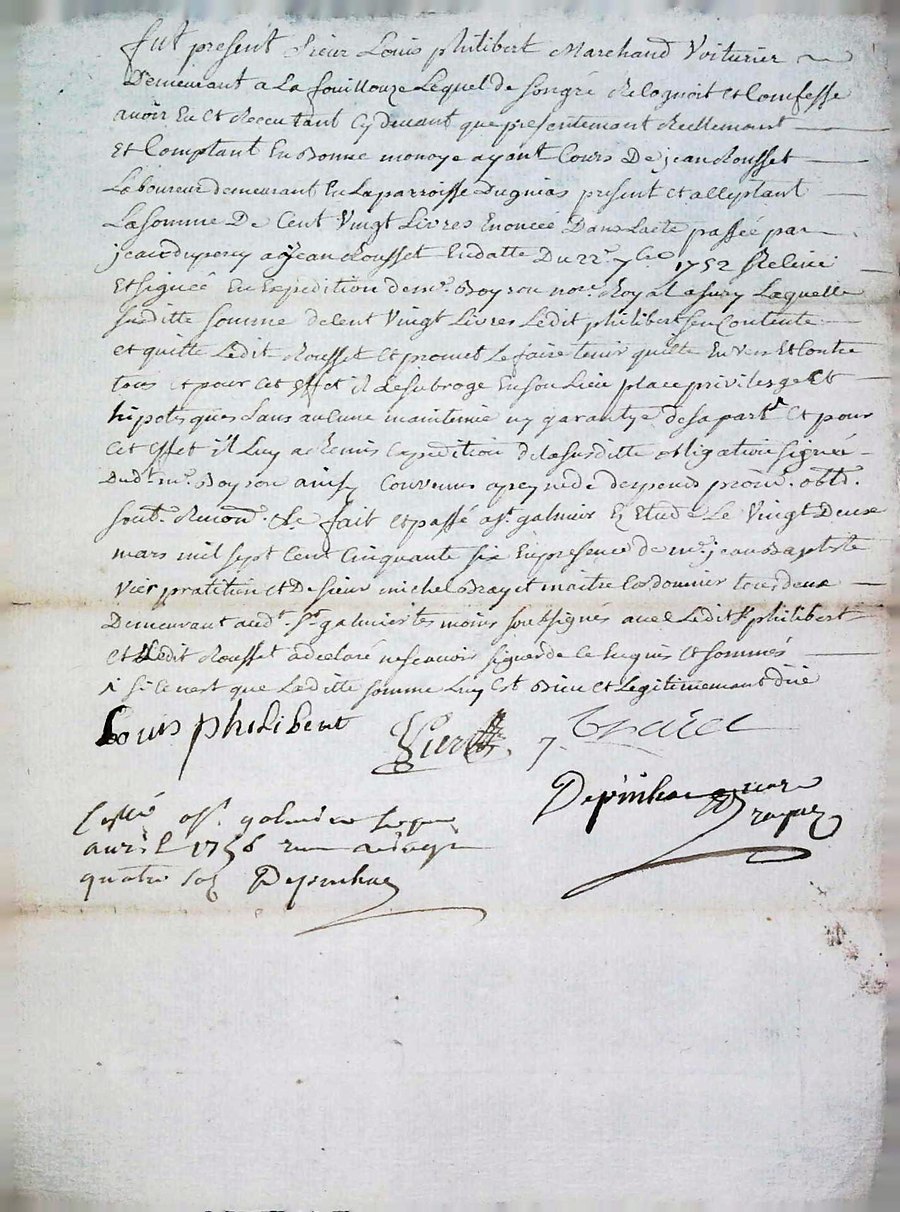 fut présent Sieur Louis philibert Marchand Voiturier
Demeurant a La fouillouze Lequel de Songré Recognoit et Comfesse
avoir Eu et Receu tant Cy devant que presentemant Reellemant
et Comptant En Bonne monoye ayant Cours De jean Rousset
Laboureur demeurant En La parroisse present et acceptant
La somme De Cent Vingt Livres Enoncée Dans Lacte passée par
jean a jean Rousset En datte Du 22e 7bre 1752
Et signée En Expedition de mr. Boyron nore. Royal a sury Laquelle
Suditte somme de Cent Vingt Livres Ledit philibert sen Contente
et quitte Ledit Rousset et promet Le faire tenir quitte Envers Et Contre
tous et pour cet effet il Le subroge En son Lieu place privilesge Et
hipotesques sans aucune maintenüe ny garantye de sa part Et pour
Cet effet il Luy a Remis Expedition de La susditte obligation signée
Dudt. mr. Boyron ainsy Convenus a peyne de despends prom. obtd.
soubt. Renond. Le fait et passé a st. galmier En Etude Le Vingt Deux
mars mil sept Cent Cinquante six En presence de mr. jean Baptiste
Vier pratitien et De sieur michel maitre Cordonnier tous deux
Demeurant audt. st. galmier tes moins soussignés avec Ledit sr. philibert
et Ledit Rousset a declaré ne scavoir signer de ce Enquis et sommés
si ce nest que Laditte somme Luy est Bien et Legitimemant düe
Louis philibert Vier
Depinhac nore Royal
a st. galmier
avril 1756
quatre sols Depinhac